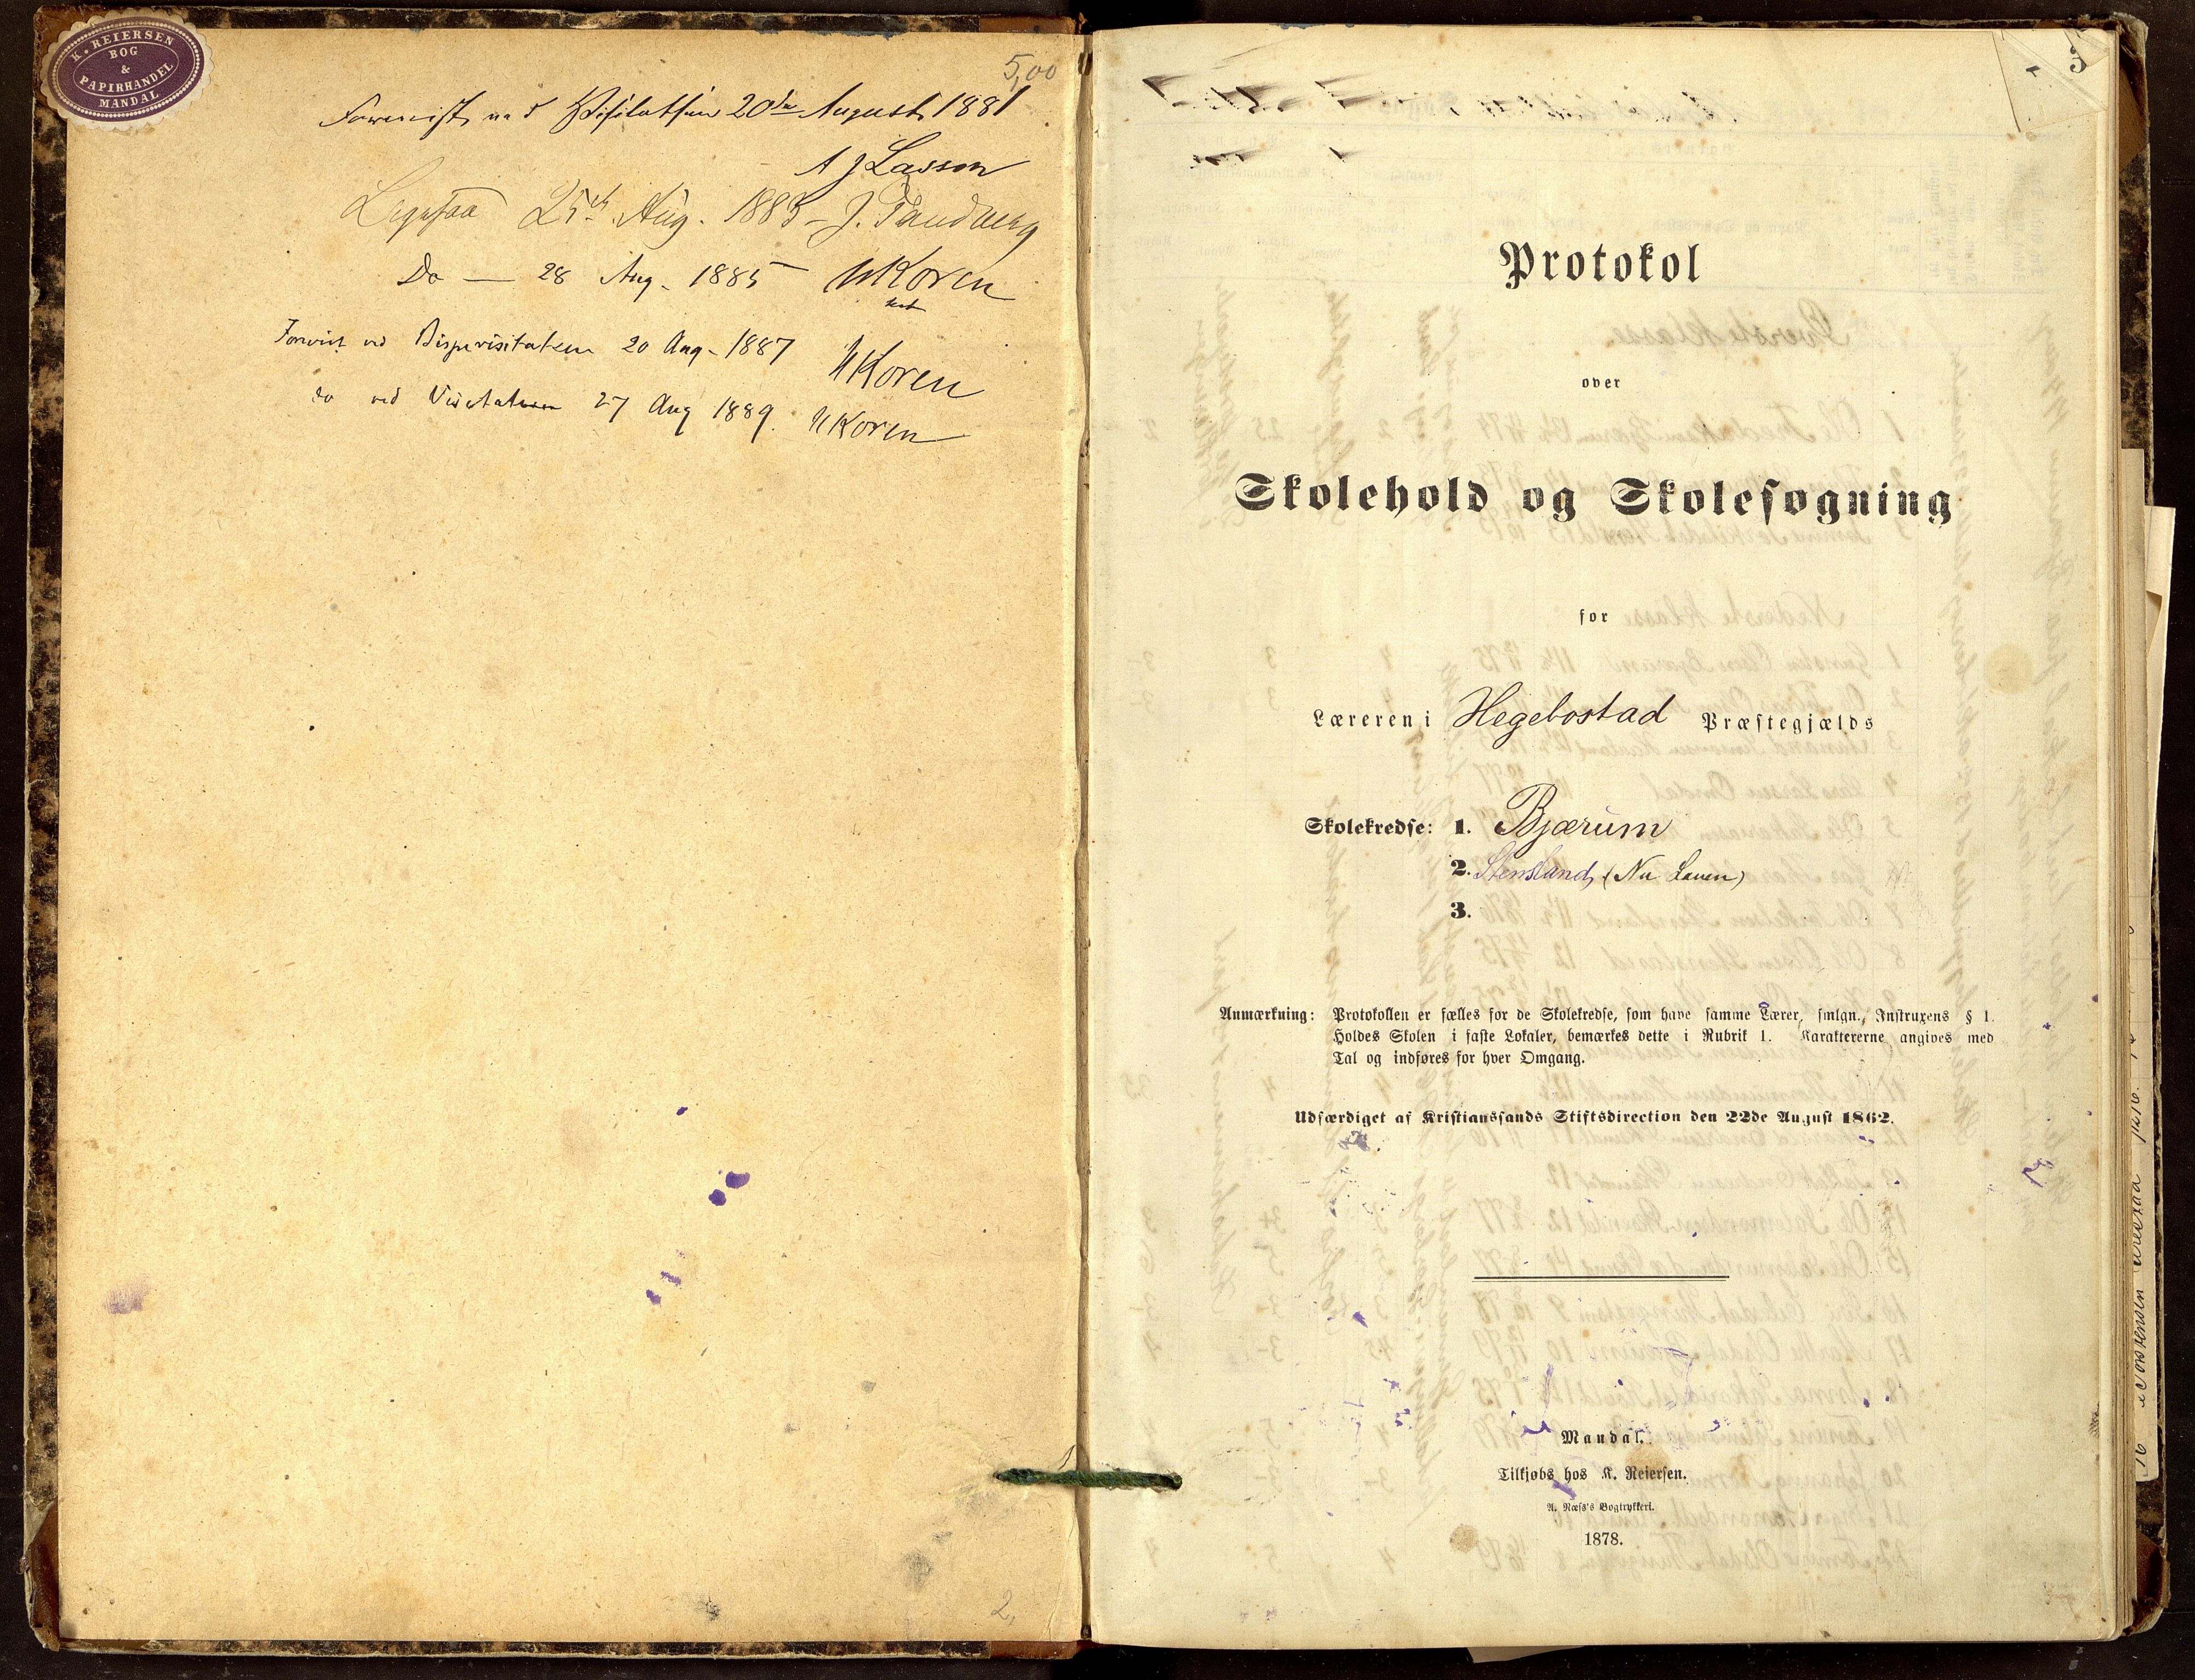 K. REIERSEN
BOG
&
PAPIRHANDEL
MANDAL
5,00
Forevist ved Visitatsen 20de August 1881
A J Lasson
Ligesaa 25de Aug. 1883 - J. Tandberg
Do — 28 Aug. 1885 — NKoren
Forevist ved Bispevisitatsen 20 Aug. 1887 NKoren
do ved Visitatsen 27 Aug 1889. NKoren
2,
3
Protokol
over
Skolehold og Skolesøgning
for
Læreren i Hegebostad Præstegjælds
Skolekredse: 1. Bjærum
2. Stensland, (Nu Lauen)
3.
Anmærkning: Protokollen er fælles for de Skolekredse, som have samme Lærer, smlgn., Instruxens § 1.
Holdes Skolen i faste Lokaler, bemærkes dette i Rubrik 1. Karaktererne angives med
Tal og indføres for hver Omgang.
Udfærdiget af Kristianssands Stiftsdirection den 22de August 1862.
Mandal.
Tilkjøbs hos K. Reiersen.
A. Næss's Bogtrykkeri.
1878.